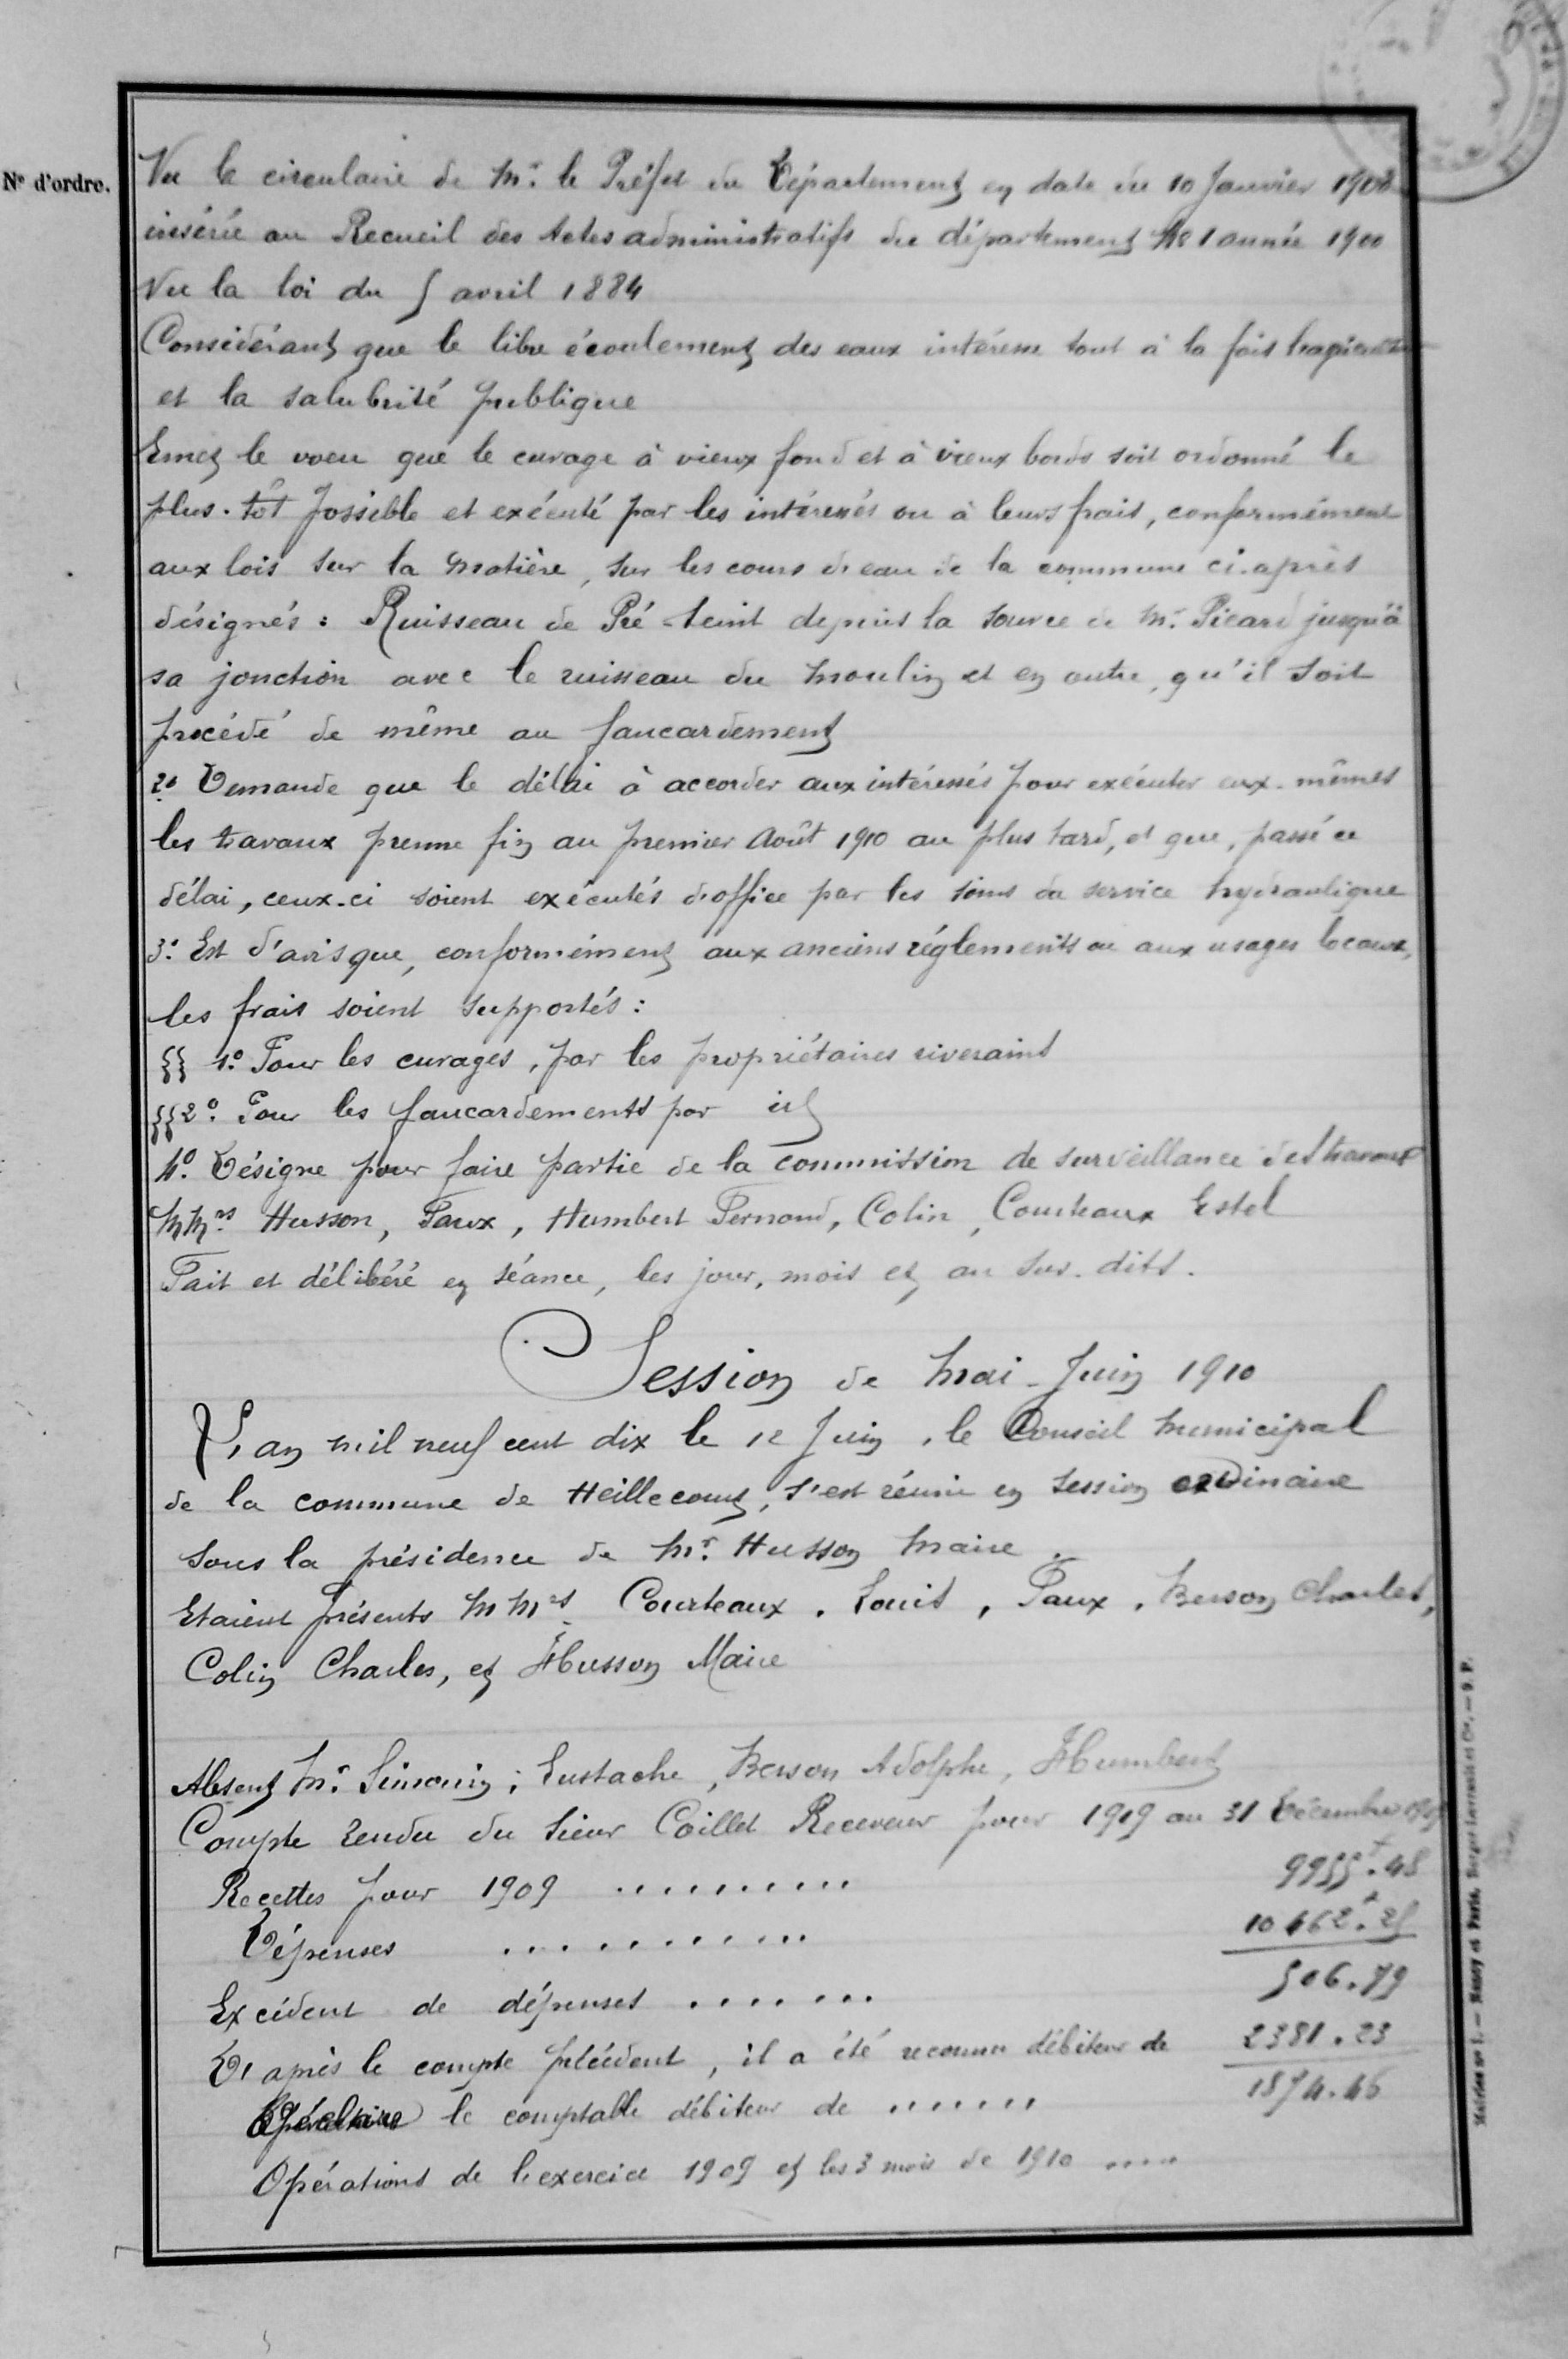 N° d'ordre.
Vu la circulaire de Mr. le Préfet du Département en date du 10 Janvier 1900
insérée au Recueil des Actes administratifs du département No 1 année 1900
Vu la loi du 5 avril 1884
Considérant que le libre écoulement des eaux intéresse tout à la fois l'agriculture
et la salubrité publique
Emet le voeu que le curage à vieux fond et à vieux bords soit ordonné le
plus-tôt possible et exécuté par les intéressés ou à leurs frais, conformément
aux lois sur la matière, sur les cours d'eau de la commune ci-après
désignés : Ruisseau de Pré-teint depuis la source de Mr. Picard jusqu'à
sa jonction avec le ruisseau du Moulin et en outre, qu'il soit
procédé de même au faucardement
2° Demande que le délai à accorder aux intéressés pour exécuter eux-mêmes
les travaux prenne fin au premier Août 1910 au plus tard, et que, passé ce
délai, ceux-ci soient exécutés d'office par les soins du service hydraulique
3° Est d'avis que, conformément aux anciens réglements ou aux usages locaux,
les frais soient supportés :
{{ 1° Pour les curages, par les propriétaires riverains
{{ 2° Pour les faucardements par id
4° Désigne pour faire partie de la commission de surveillance des travaux
MMrs Husson, Paux, Humbert Fernand, Colin, Courteaux Estel
Fait et délibéré en séance, les jour, mois et an sus-dits.
Session de Mai-Juin 1910
L'an mil neuf cent dix le 12 Juin, le Conseil Municipal
de la commune de Heillecourt, s'est réuni en session ordinaire
sous la présidence de Mr. Husson Maire.
Etaient présents MMrs Courteaux, Louis, Paux, Berson Charles,
Colin Charles, et Husson Maire
Absent Mr. Simonin, Eustache, Berson Adolphe, Humbert
Compte rendu du Sieur Coillet Receveur pour 1909 au 31 Décembre 1909
Recettes pour 1909 .......... 9955f.48
Dépenses .......... 10462f.25
Excédent de dépenses ....... 506.79
D'après le compte précédent, il a été reconnu débiteur de 2381.23
le comptable débiteur de ....... 1874.46
Opérations de l'exercice 1909 et les 3 mois de 1910 ....
Mairies n° 1. — Nancy et Paris. Berger-Levrault et Cie. — 9. P.